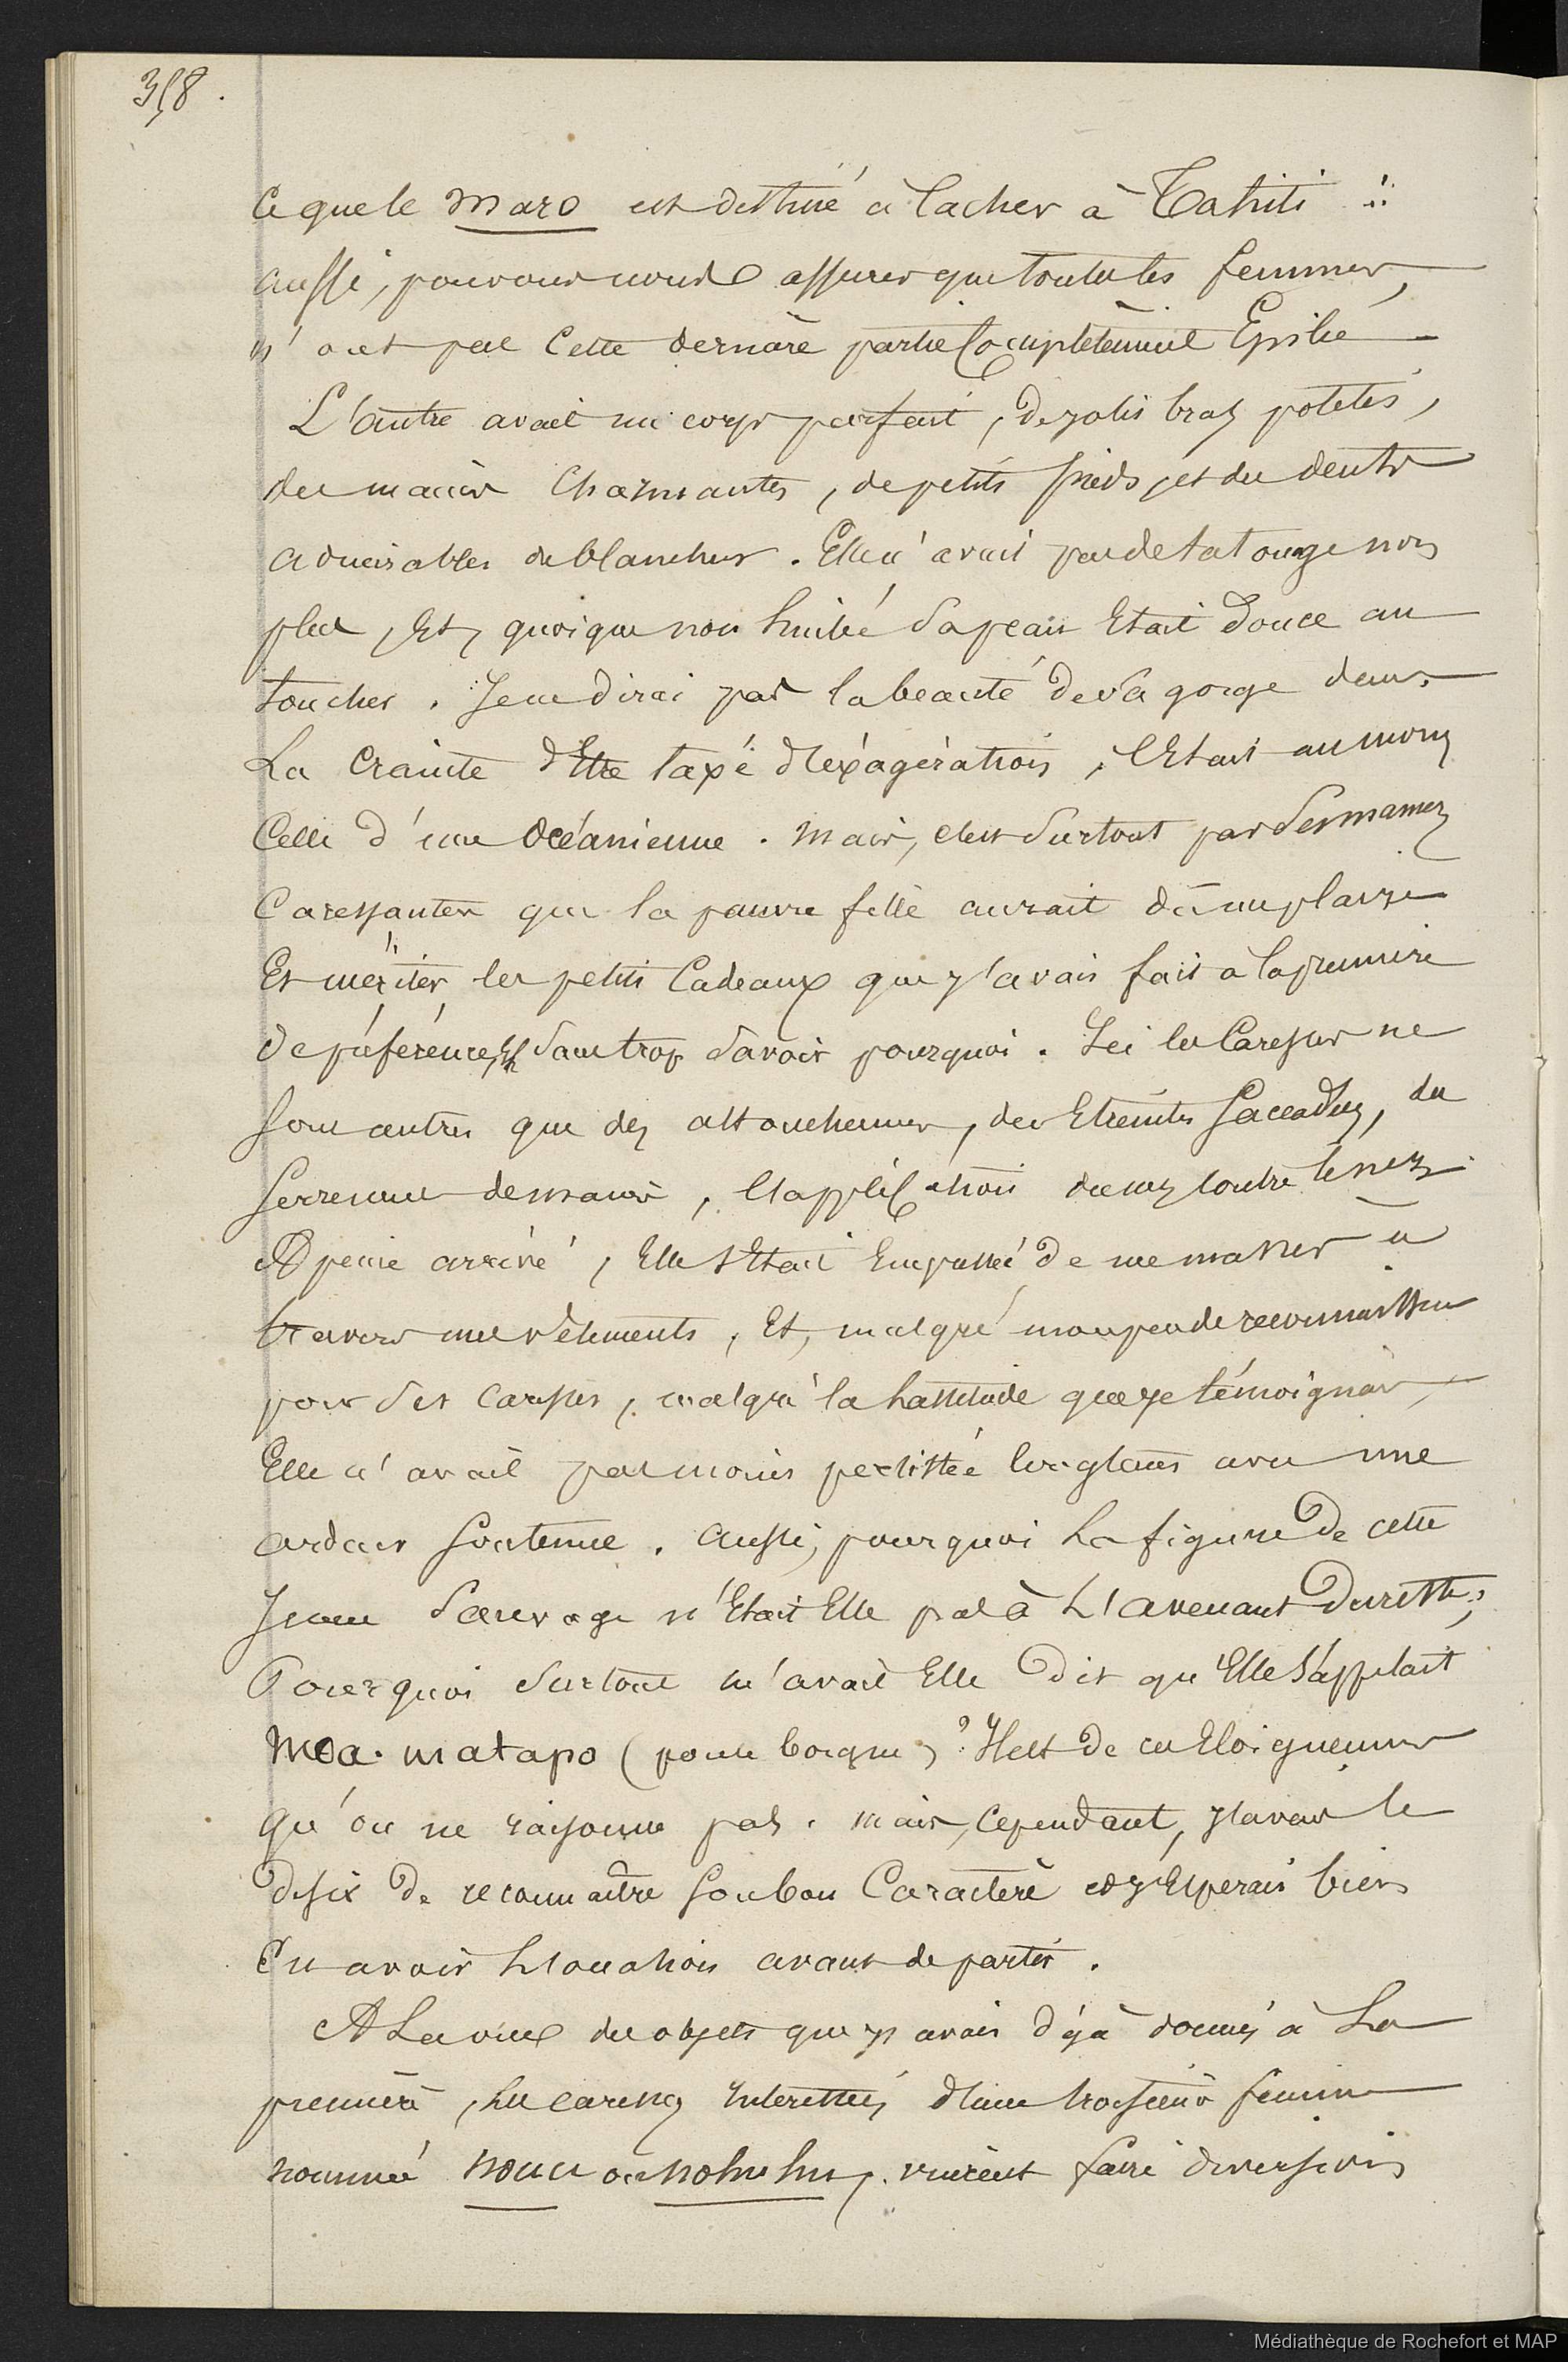 358.
Ce que le maro est destiné à cacher à Tahiti !!
aussi, pouvons nous assurer que toutes les femmes,
n'ont pas cette dernière partie complètement Epilée —
L'autre avait un corps parfait, de jolis bras potelés,
des mains charmantes, de petits pieds, et des dents
admirables de blancheur. Elle n'avait pas de tatouage non
plus, Et, quoique non huilée sa peau Etait douce au
toucher. Je ne dirai pas la beauté de sa gorge dans
La Crainte d'Etre taxé d'éxagération, c'Etait au moins
Celle d'une Océanienne. Mais, c'est surtout par ses manières
Caressantes que la pauvre fille aurait dû me plaire
Et mériter les petits Cadeaux que j'avais fait à la première
de préférence, sans trop savoir pourquoi. Ici les Caresses ne
sont autres que des attouchemens, des Etreintes saccadées, des
serremens de mains, l'application du nez contre le nez.
A peine arrivé, Elle s'Etait Empressée de me masser à
travers mes vêtements, Et, malgré mon peu de reconnaissance
pour ses caresses, malgré la lassitude que je témoignais,
Elle n'avait pas moins persistée longtems avec une
ardeur soutenue. Aussi, pourquoi la figure de cette
Jeune Sauvage n'Etait Elle pas à L'avenant du reste;
Pourquoi surtout m'avait Elle dit qu'Elle s'appelait
Moa-matapo (poule borgne)? Il est de ces Eloignemens
qu'on ne raisonne pas. Mais, Cependant, j'avais le
désir de reconnaître son bon Caractère et j'Esperais bien
En avoir L'occasion avant de partir.
A La vue des objets que j'avais déjà donnés à La
première, les caresses intéressées d'une troisième femme
nommée nouu ou nohuhu, vinrent faire diversion